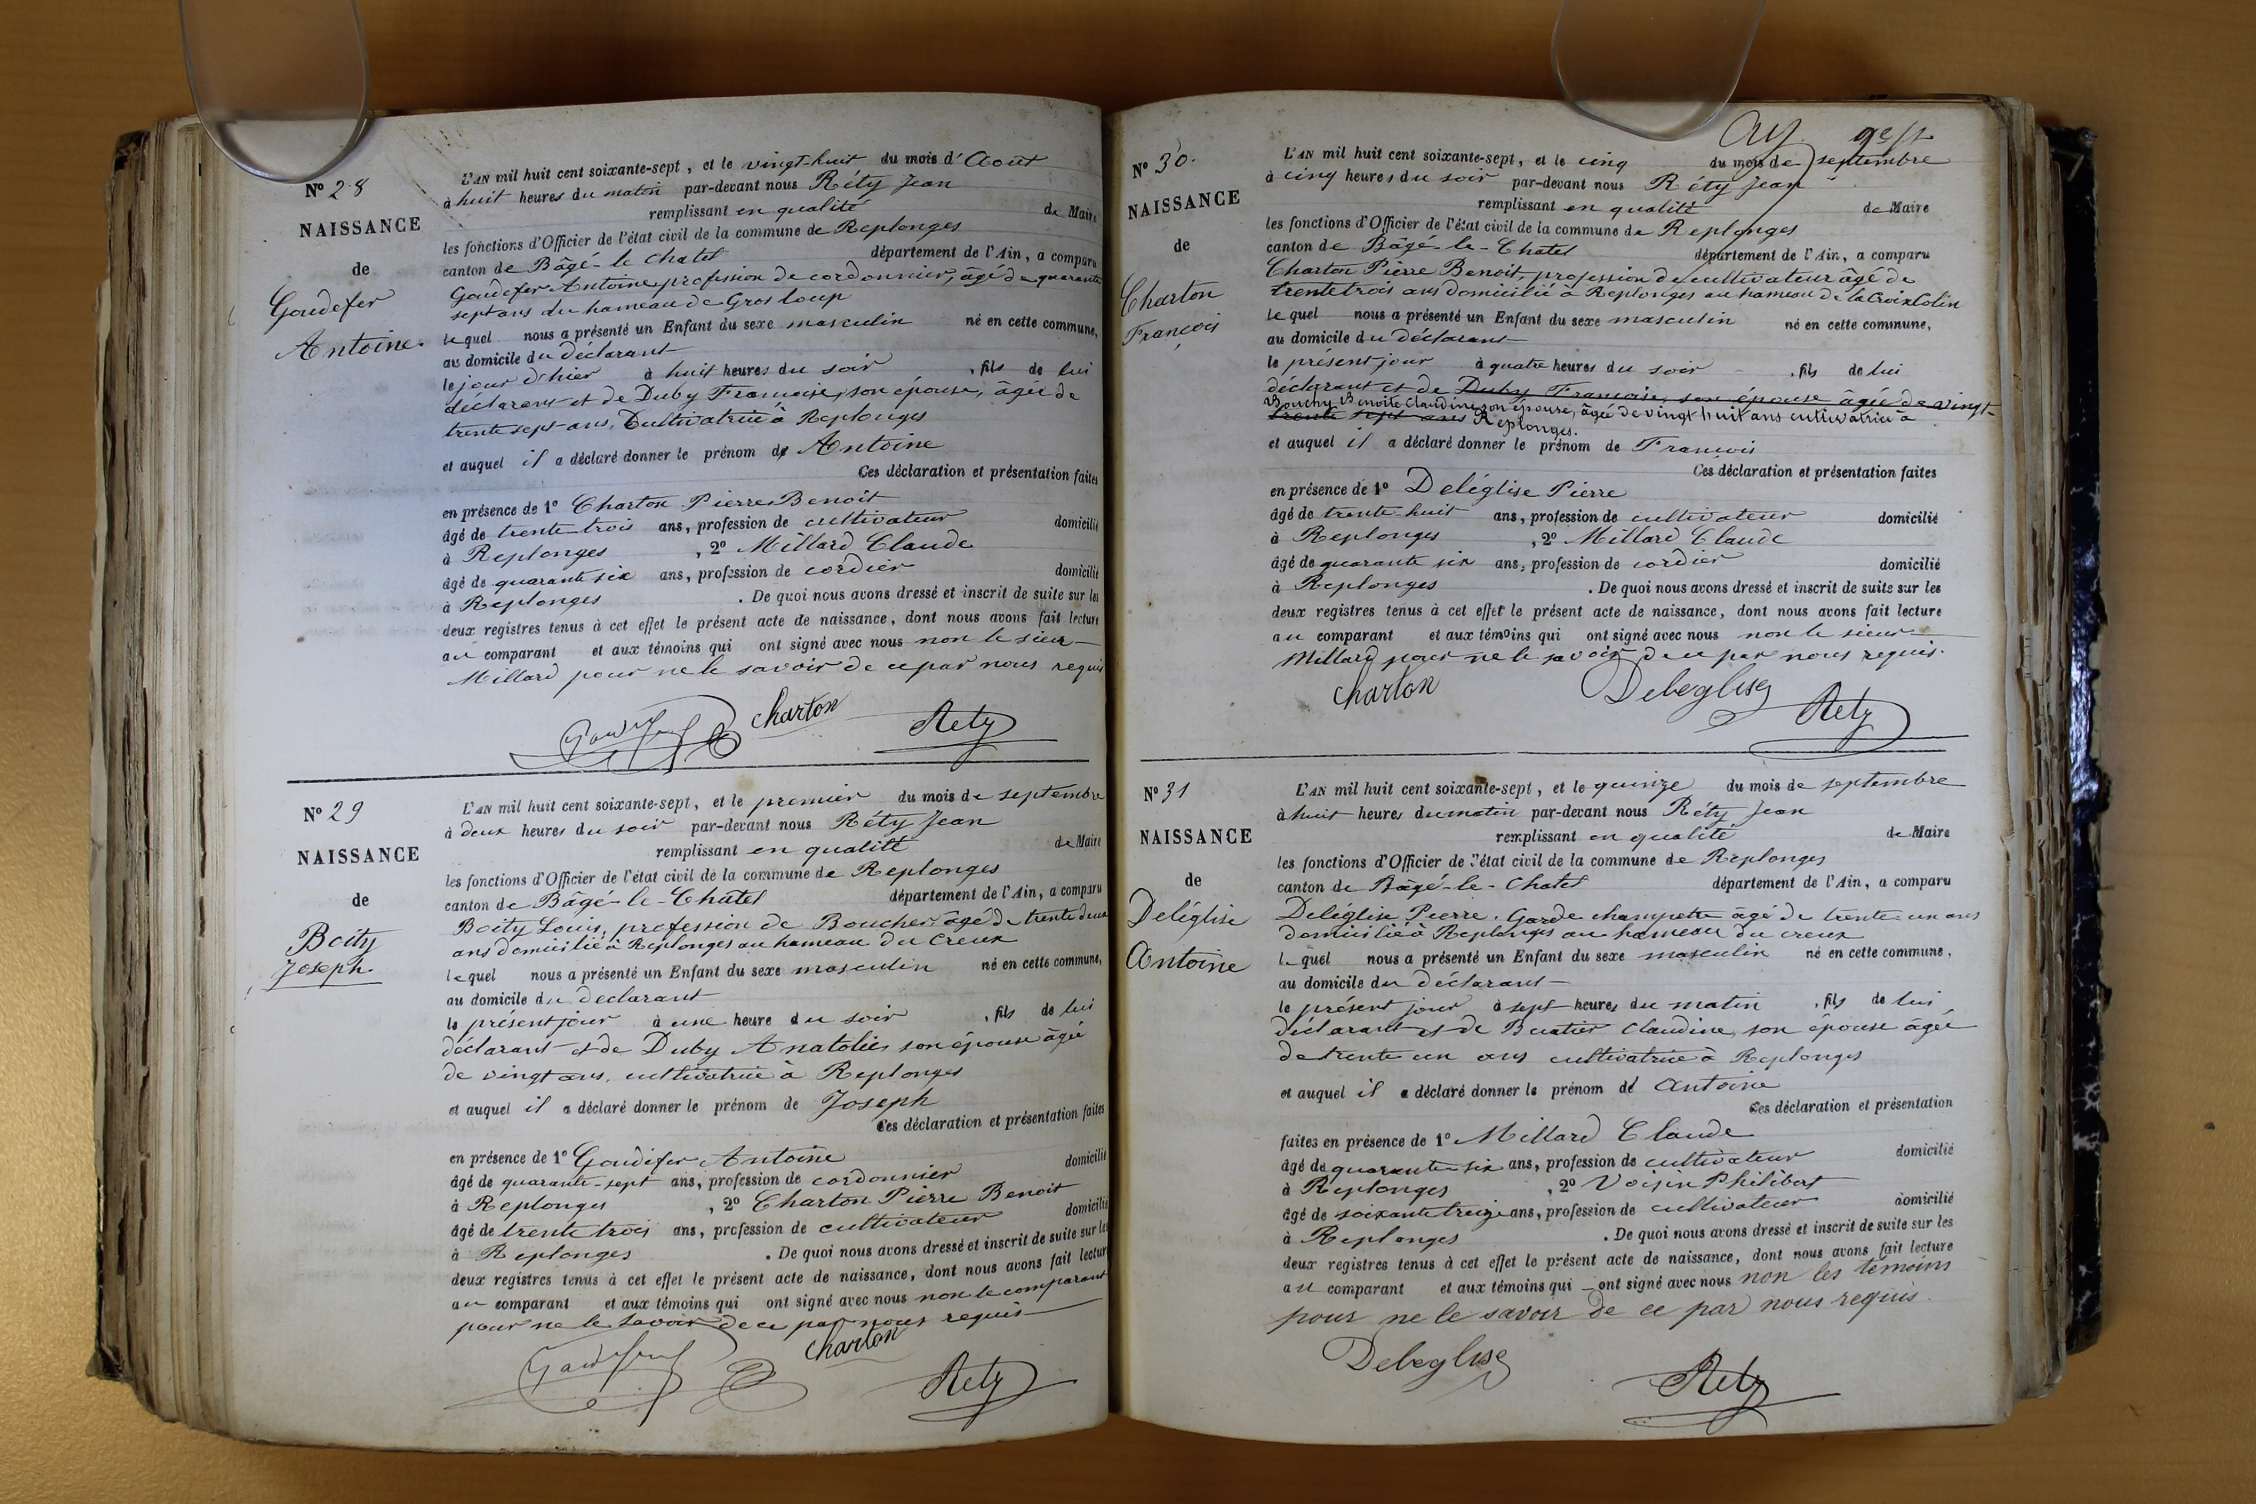 Nº 28
NAISSANCE
de
Goudefer
Antoine.
L'AN mil huit cent soixante-sept, et le vingt-huit du mois d'Aout
à huit heures du matin par-devant nous Réty Jean
remplissant en qualité de Maire
les fonctions d'Officier de l'état civil de la commune de Replonges
canton de Bâgé-le Chatel département de l'Ain, a comparu
Goudefer Antoine profession de cordonnier, âgé de quarante
sept ans du hameau de Gros loup
lequel nous a présenté un Enfant du sexe masculin né en cette commune,
au domicile du déclarant
le jour d'hier à huit heures du soir, fils de lui
déclarant et de Duby Francoise, son épouse, âgée de
trente sept ans, Cultivatrice à Replonges
et auquel il a déclaré donner le prénom de Antoine
Ces déclaration et présentation faites
en présence de 1º Charton Pierre Benoit
âgé de trente-trois ans, profession de cultivateur domicilié
à Replonges, 2º Millard Claude
âgé de quarante six ans, profession de cordier domicilié
à Replonges. De quoi nous avons dressé et inscrit de suite sur les
deux registres tenus à cet effet le présent acte de naissance, dont nous avons fait lecture
au comparant et aux témoins qui ont signé avec nous non le sieur
Millard pour ne le savoir de ce par nous requis
Charton Rety
Nº 29
NAISSANCE
de
Boity
Joseph.
L'AN mil huit cent soixante-sept, et le premier du mois de septembre
à deux heures du soir par-devant nous Réty Jean
remplissant en qualité de Maire
les fonctions d'Officier de l'état civil de la commune de Replonges
canton de Bâgé-le-Châtel département de l'Ain, a comparu
Boity Louis, profession de Boucher âgé de trente deux
ans domicilié à Replonges au hameau du Creux
lequel nous a présenté un Enfant du sexe masculin né en cette commune,
au domicile du déclarant
le présent jour à une heure du soir, fils de lui
déclarant et de Duby Anatolie, son épouse âgée
de vingt ans, cultivatrice à Replonges
et auquel il a déclaré donner le prénom de Joseph
Ces déclaration et présentation faites
en présence de 1º Goudefer Antoine
âgé de quarante-sept ans, profession de cordonnier domicilié
à Replonges, 2º Charton Pierre Benoit
âgé de trente trois ans, profession de cultivateur domicilié
à Replonges. De quoi nous avons dressé et inscrit de suite sur les
deux registres tenus à cet effet le présent acte de naissance, dont nous avons fait lecture
au comparant et aux témoins qui ont signé avec nous non le comparant
pour ne le savoir de ce par nous requis
Charton
Rety
Nº 30.
NAISSANCE
de
Charton
François
L'AN mil huit cent soixante-sept, et le cinq du mois de septembre
à cinq heures du soir par-devant nous Réty Jean
remplissant en qualité de Maire
les fonctions d'Officier de l'état civil de la commune de Replonges
canton de Bâgé-le-Chatel département de l'Ain, a comparu
Charton Pierre Benoit, profession de cultivateur âgé de
trente trois ans domicilié à Replonges au hameau de la Croix Colin
lequel nous a présenté un Enfant du sexe masculin né en cette commune,
au domicile du déclarant
le présent jour à quatre heures du soir, fils de lui
déclarant et de Duby Francoise, son épouse âgée de vingt-
Bouchy Benoite Claudine son épouse, âgée de vingt huit ans cultivatrice à
trente sept ans Replonges.
et auquel il a déclaré donner le prénom de François
Ces déclaration et présentation faites
en présence de 1º Deléglise Pierre
âgé de trente-huit ans, profession de cultivateur domicilié
à Replonges, 2º Millard Claude
âgé de quarante six ans, profession de cordier domicilié
à Replonges. De quoi nous avons dressé et inscrit de suite sur les
deux registres tenus à cet effet le présent acte de naissance, dont nous avons fait lecture
au comparant et aux témoins qui ont signé avec nous non le sieur
Millard pour ne le savoir de ce par nous requis.
Charton Deleglise
Rety
Nº 31
NAISSANCE
de
Deléglise
Antoine
L'AN mil huit cent soixante-sept, et le quinze du mois de septembre
à huit heures du matin par-devant nous Réty Jean
remplissant en qualité de Maire
les fonctions d'Officier de l'état civil de la commune de Replonges
canton de Bâgé-le-Chatel département de l'Ain, a comparu
Deléglise Pierre. Garde champetre âgé de trente un ans
domicilié à Replonges au hameau du creux
lequel nous a présenté un Enfant du sexe masculin né en cette commune,
au domicile du déclarant
le présent jour à sept heures du matin, fils de lui
déclarant et de Buatier Claudine, son épouse âgée
de trente un ans cultivatrice à Replonges
et auquel il a déclaré donner le prénom de Antoine
Ces déclaration et présentation
faites en présence de 1º Millard Claude
âgé de quarante six ans, profession de cultivateur domicilié
à Replonges, 2º Voisin Philibert
âgé de soixante treize ans, profession de cultivateur domicilié
à Replonges. De quoi nous avons dressé et inscrit de suite sur les
deux registres tenus à cet effet le présent acte de naissance, dont nous avons fait lecture
au comparant et aux témoins qui ont signé avec nous non les témoins
pour ne le savoir de ce par nous requis.
Deleglise
Rety